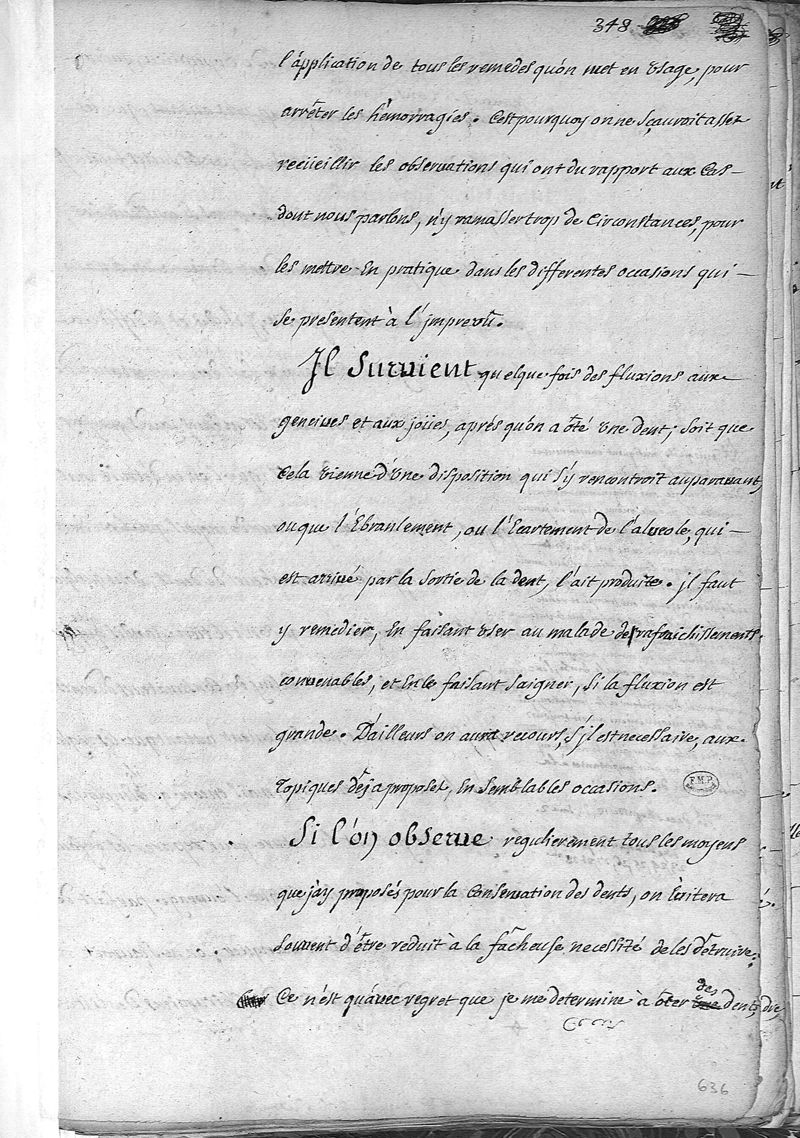 348
l'application de tous les remedes qu'on met en usage, pour
arrêter les hêmorragies. C'est pourquoy on ne sçauroit assez
recüeillir les observations qui ont du rapport aux Cas
dont nous parlons, n'y ramasser trop de Circonstances, pour
les mettre En pratique dans les differentes occasions qui
se presentent à l'jmprevû.
Jl survient quelque fois des fluxions aux
gencives et aux joües, aprés qu'on a ôté une dent; soit que
Cela vienne d'une disposition qui s'y rencontroit auparavant,
ou que l'Ebranlement, ou l'Ecartement de l'alveole, qui
est arrivé par la sortie de la dent, l'ait produite. jl faut
y remedier, En faisant user au malade de rafraichissements
convenables, et En le faisant saigner, si la fluxion est
grande. D'ailleurs on aura recours, s'jl est necessaire, aux
Topiques dêja proposez, En semblables occasions.
F.M.P.
Si l'on observe regulierement tous les moyens
que j'ay proposés pour la Conservation des dents, on Evitera
souvent d'être reduit à la fâcheuse necessité de les dêtruire.
Ce n'est qu'avec regret que je me determine à ôter des dents,
636